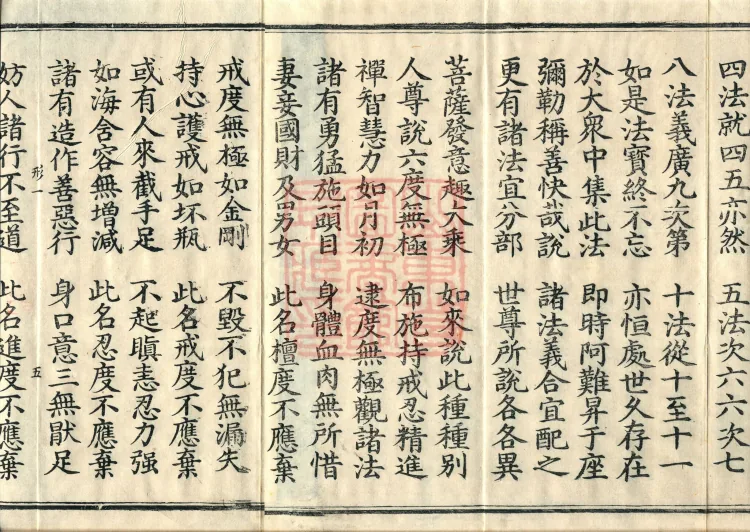 四法就四五亦然　五法次六六次七
八法義廣九次第　十法從十至十一
如是法寶終不忘　亦恒處世久存在
於大衆中集此法　即時阿難昇于座
彌勒稱善快哉說　諸法義合宜配之
更有諸法宜分部　世尊所說各各異
菩薩發意趣大乘　如來說此種種別
人尊說六度無極　布施持戒忍精進
禪智慧力如月初　逮度無極觀諸法
諸有勇猛施頭目　身體血肉無所惜
妻妾國財及男女　此名檀度不應棄
戒度無極如金剛　不毀不犯無漏失
持心護戒如坏瓶　此名戒度不應棄
或有人來截手足　不起瞋恚忍力强
如海含容無增減　此名忍度不應棄
諸有造作善惡行　身口意三無猒足
形一　五
妨人諸行不至道　此名進度不應棄